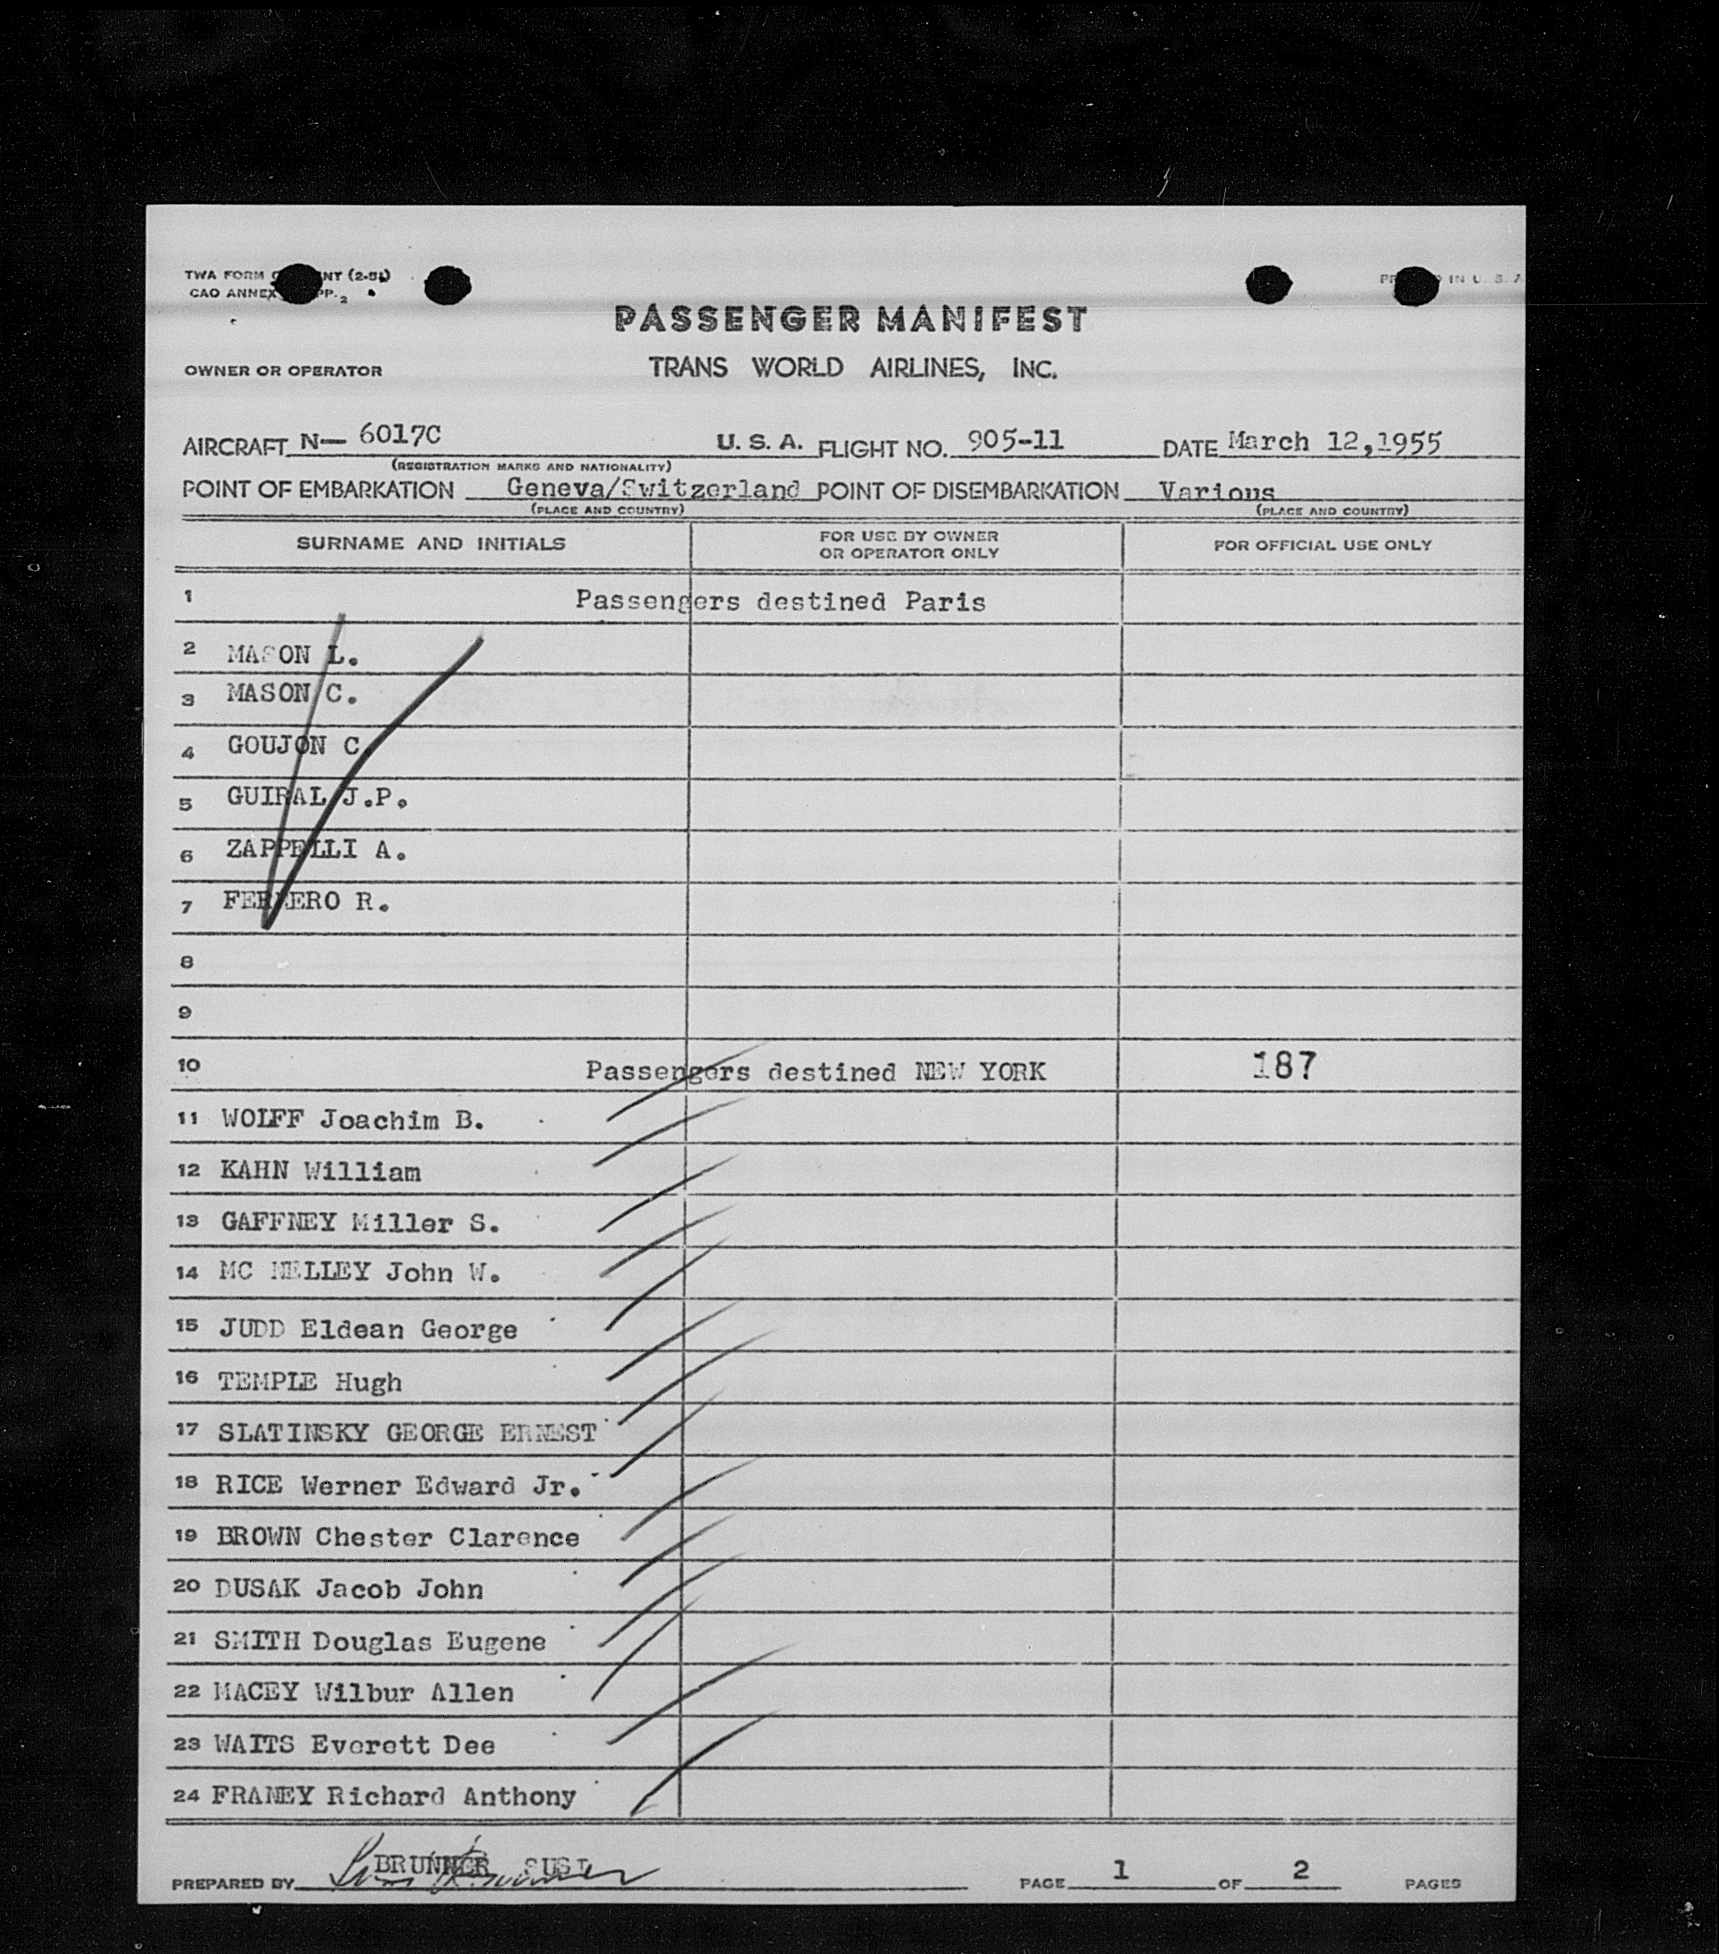 TWA FORM NT (2-51)
CAO ANNEX PP. 2
IN U. S. A
PASSENGER MANIFEST
OWNER OR OPERATOR TRANS WORLD AIRLINES, INC.
AIRCRAFT N— 6017C U. S. A. FLIGHT NO. 905-11 DATE March 12,1955
(REGISTRATION MARKS AND NATIONALITY)
POINT OF EMBARKATION Geneva/Switzerland POINT OF DISEMBARKATION Various
(PLACE AND COUNTRY) (PLACE AND COUNTRY)
SURNAME AND INITIALS FOR USE BY OWNER OR OPERATOR ONLY FOR OFFICIAL USE ONLY
1 Passengers destined Paris
2 MASON L.
3 MASON C.
4 GOUJON C.
5 GUIRAL J.P.
6 ZAPPELLI A.
7 FERRERO R.
8
9
10 Passengers destined NEW YORK 187
11 WOLFF Joachim B.
12 KAHN William
13 GAFFNEY Miller S.
14 MC NELLEY John W.
15 JUDD Eldean George
16 TEMPLE Hugh
17 SLATINSKY GEORGE ERNEST
18 RICE Werner Edward Jr.
19 BROWN Chester Clarence
20 DUSAK Jacob John
21 SMITH Douglas Eugene
22 MACEY Wilbur Allen
23 WAITS Everett Dee
24 FRANEY Richard Anthony
PREPARED BY BRUNNER SUSI PAGE 1 OF 2 PAGES